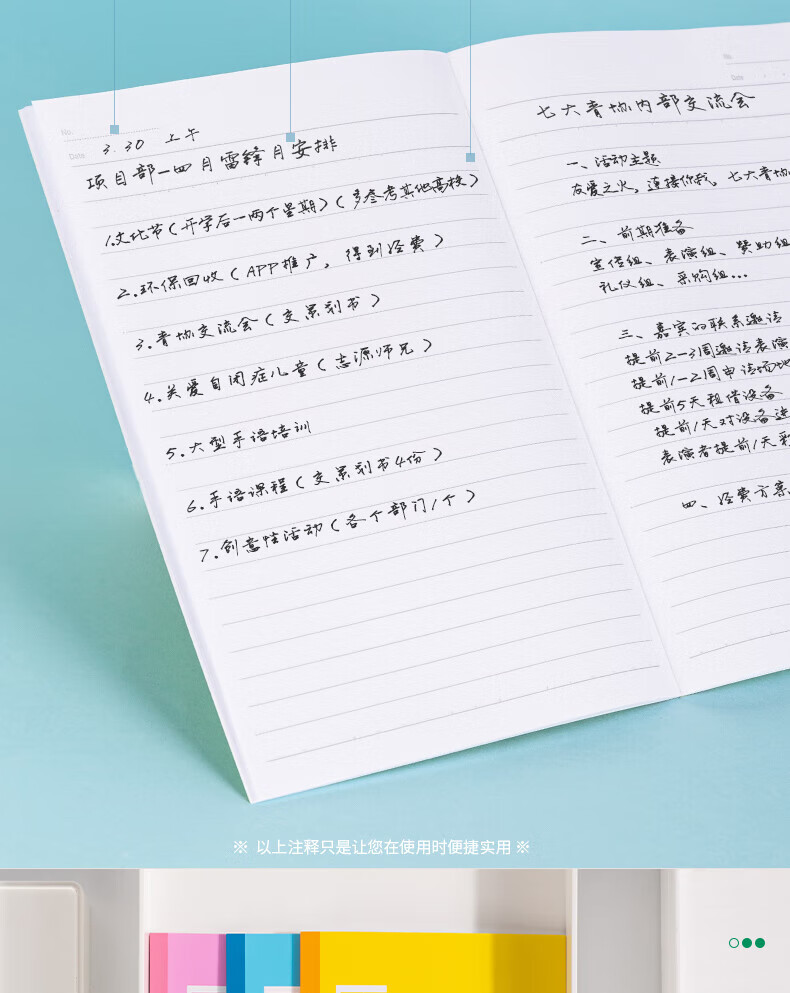 No.
Date
3.30 上午
项目部-四月雷锋月安排
1.文化节(开学后一两个星期)(多参考其他高校)
2.环保回收(APP推广,得到经费)
3.青协交流会(交策划书)
4.关爱自闭症儿童(志源师兄)
5.大型手语培训
6.手语课程(交策划书4份)
7.创意性活动(各个部门1个)
No.
Date
七大青协内部交流会
一、活动主题
友爱之火,连接你我,七大青协
二、前期准备
宣传组、表演组、赞助组
礼仪组、采购组...
三、嘉宾的联系邀请
提前2-3周邀请表演
提前1-2周申请场地
提前5天租借设备
提前1天对设备进
表演者提前1天彩
四、经费方案
※ 以上注释只是让您在使用时便捷实用 ※